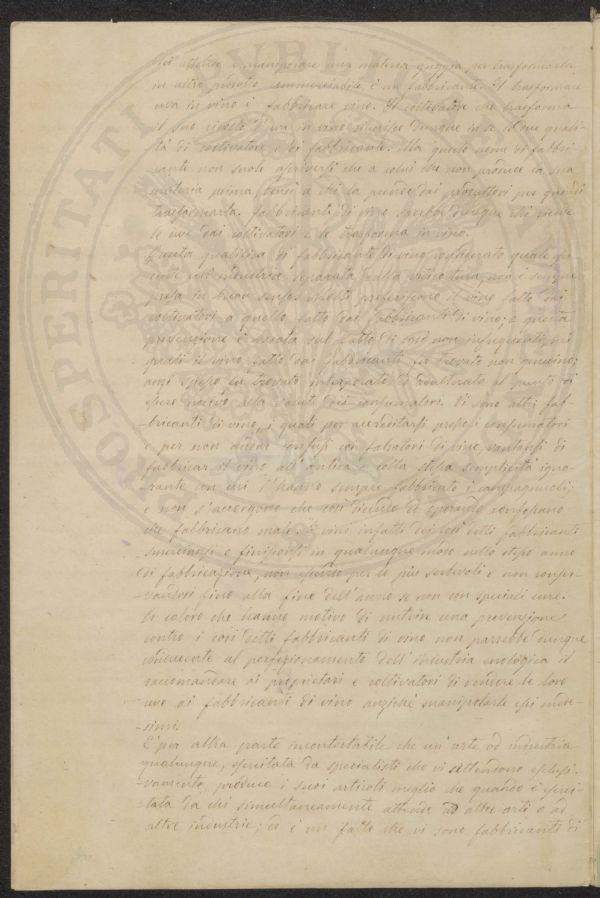 Chi attende a manipolare una materia greggia, per trasformarla
in altro prodotto commerciabile, è un fabbricante. Il trasformare
uva in vino è fabbricare vino. Il coltivatore che trasforma
il suo ricolto d'uva in vino riunisce dunque in se le due quali-
tà di coltivatore e di fabbricante. Ma questo nome di fabbri-
cante non suole ascriversi che a colui che non produce la sua
materia prima, bensì a chi la prende dai produttori per quindi
trasformarla. Fabbricanti di vino sarebbero dunque chi
le uve dai coltivatori e le trasforma in vino.
Questa qualifica di fabbricante di vino, considerato quale
un'industria separata dalla viticoltura, non è sempre
presa in buon senso; molti preferiscono il vino fatto dai
coltivatori a quello fatto dai fabbricanti di vino; e questa
prevenzione è basata sul fatto di casi non infrequenti, nei
quali il vino fatto dai fabbricanti fu trovato non genuino;
anzi spesso fu trovato ed adulterato al punto di
essere nocivo alla salute dei consumatori. Vi sono altri fab-
bricanti di vino, i quali per accreditarsi presso i consumatori
e per non essere confusi coi falsatori di vino, vantansi di
fabbricar il vino all'antica e colla stessa semplicità igno-
rante con cui l'hanno sempre fabbricato i campagnuoli;
e non s'accorgono che così dicendo ed operando confessano
che fabbricano male. I vini infatti di questi detti fabbricanti
smerciansi e finisconsi in qualunque modo nello stesso anno
di fabbricazione, non essendo per lo più serbevoli e non conser-
vandosi fino alla fine dell'anno se non con speciali cure.
In coloro che hanno motivo di nutrire una prevenzione
contro i così detti fabbricanti di vino non parrebbe dunque
conducente al perfezionamento dell'industria enologica il
raccomandare ai proprietari e coltivatori di vendere le loro
uve ai fabbricanti di vino anziché manipolarle essi mede-
simi.
È per altra parte incontestabile che un'arte od industria
qualunque, esercitata da specialisti che vi attendono esclusi-
vamente, produce i suoi articoli meglio che quando è eserci-
tata da chi simultaneamente attende ad altre arti o ad
altre industrie; ed è un fatto che vi sono fabbricanti di
PROSPERITATI PUBLICAE